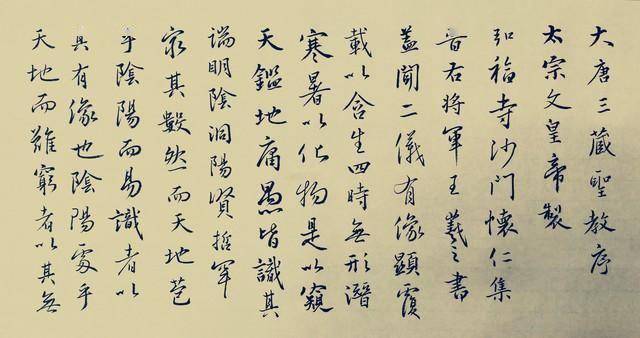 大唐三藏聖教序
太宗文皇帝製
弘福寺沙門懷仁集
晉右將軍王羲之書
蓋聞二儀有像顯覆
載以含生四時無形潛
寒暑以化物是以窺
天鑑地庸愚皆識其
端明陰洞陽賢哲罕
窮其數然而天地苞
乎陰陽而易識者以
其有像也陰陽處乎
天地而難窮者以其無